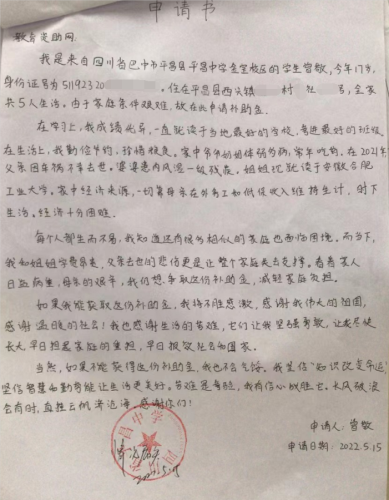 申请书
教育资助网：
我是来自四川省巴中市平昌县平昌中学金宝校区的学生曾敏，今年17岁，
身份证号为511923 20 ，住在平昌县西兴镇 村 社 号，全家
共5人生活。由于家庭条件艰难，故在此申请补助金。
在学习上，我成绩优异，一直就读于当地最好的学校，考进最好的班级。
在生活上，我勤俭节约，珍惜粮食。家中爷爷奶奶体弱多病，常年吃药。在2021年
父亲因车祸不幸去世。婆婆患内风湿一级残疾。姐姐现就读于安徽合肥
工业大学。家中经济来源，一切靠母亲在外务工和低保收入维持生计，时下
生活，经济十分困难。
每个人都生而不易，我知道还有很多相似的家庭也面临困境。而当下，
我和姐姐学费昂贵，父亲去世的悲伤更是让整个家庭失去支撑。看着家人
日益病重，母亲的艰辛，我们想争取这份补助金，减轻家庭负担。
如果我能获取这份补助金，我将不胜感激，感谢我伟大的祖国，
感谢温暖的社会！我也感谢生活的苦难，它们让我坚强勇敢，让我尽快
长大，早日担起家庭的重担，早日报效社会和国家。
当然，如果不能获得这份补助金，我也不会气馁，我坚信“知识改变命运”，
坚信智慧和勤劳能让生活更美好。苦难是考验，我有信心战胜它。长风破浪
会有时，直挂云帆济沧海，感谢你们！
申请人：曾敏
申请日期：2022.5.15